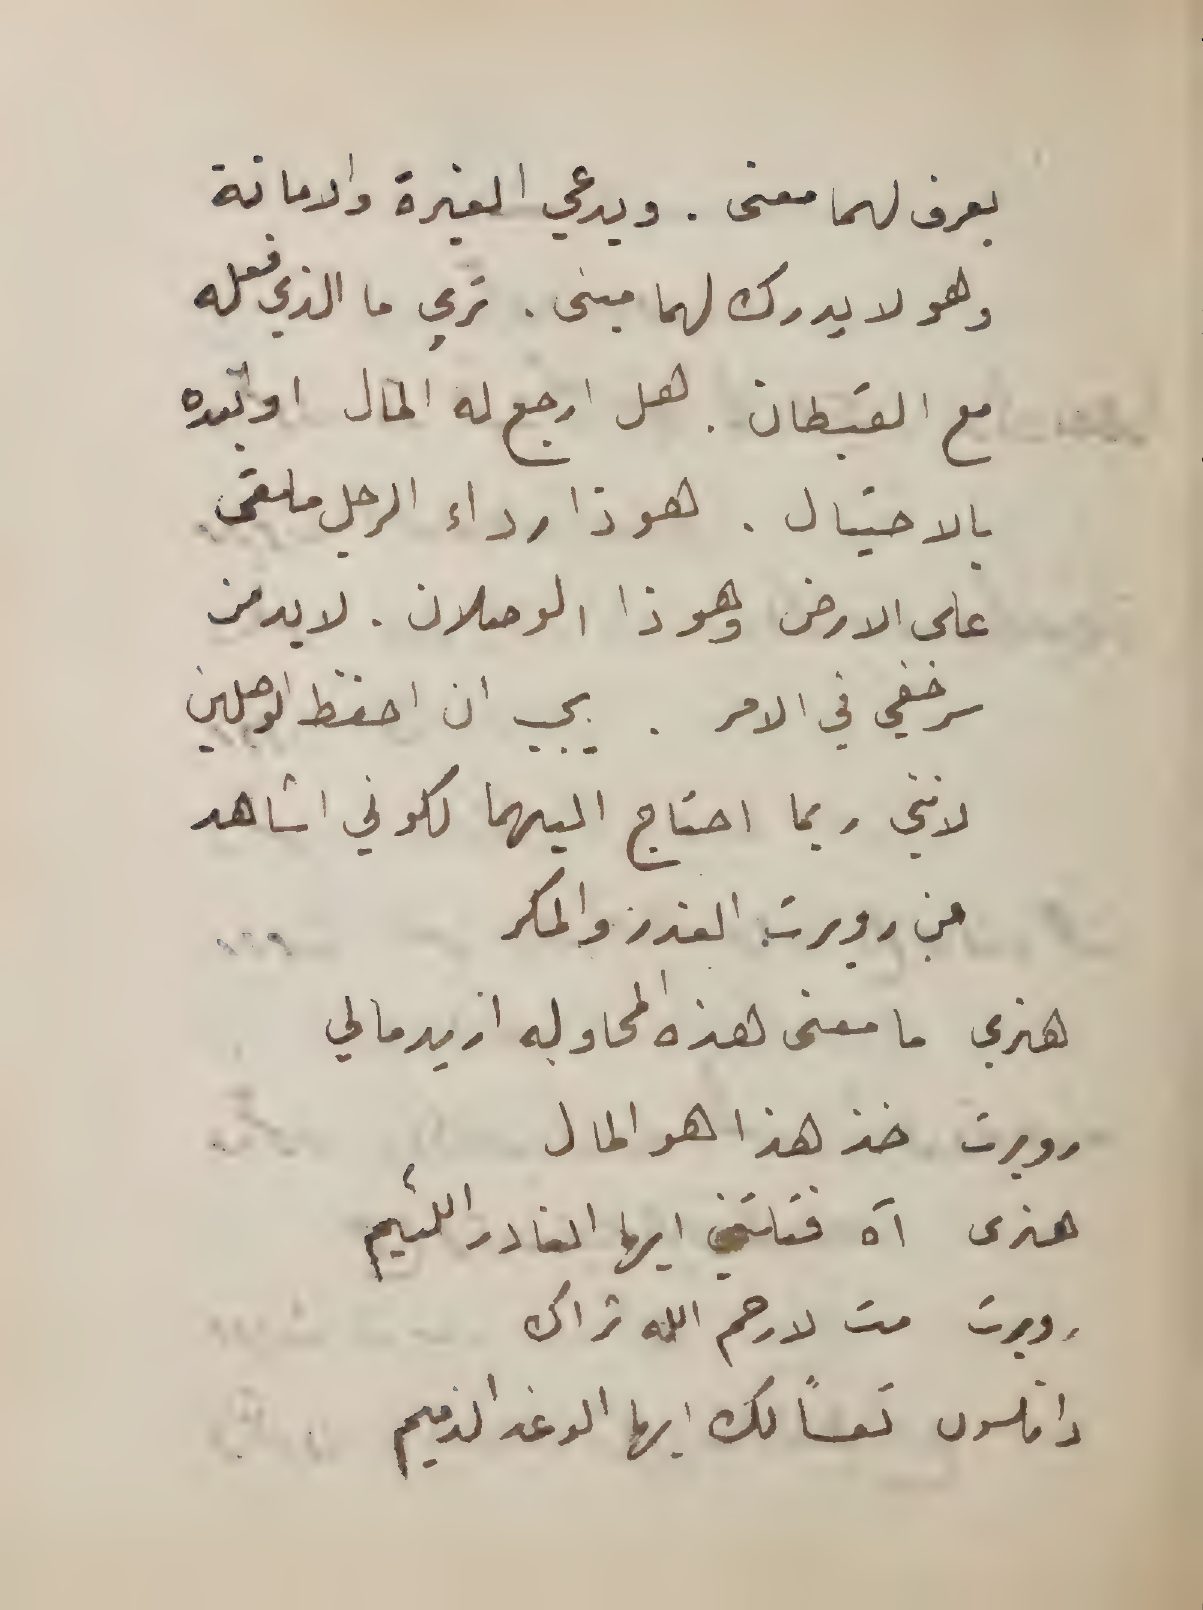 يعرف لهما معنى . ويدعي الغيرة والامانة
وهو لا يدرك لهما مبنى . ترى ما الذي فعله
مع القبطان . هل ارجع له المال او
بالاحتيال . هوذا رداء الرجل ملقى
على الارض وهوذا الوصلان . لابد من
سر خفي في الامر . يجب ان احفظ الوصلين
لانني ربما احتاج اليهما لكوني اشاهد
من روبرت الغدر والمكر
هنري ما معنى هذه المحاوله اريد مالي
روبرت خذ هذا هو المال
هنرى آه قتلتني ايها الغادر اللئيم
روبرت مت لا رحم الله ثراك
دانلسون تعساً لك ايها الوغد الذميم